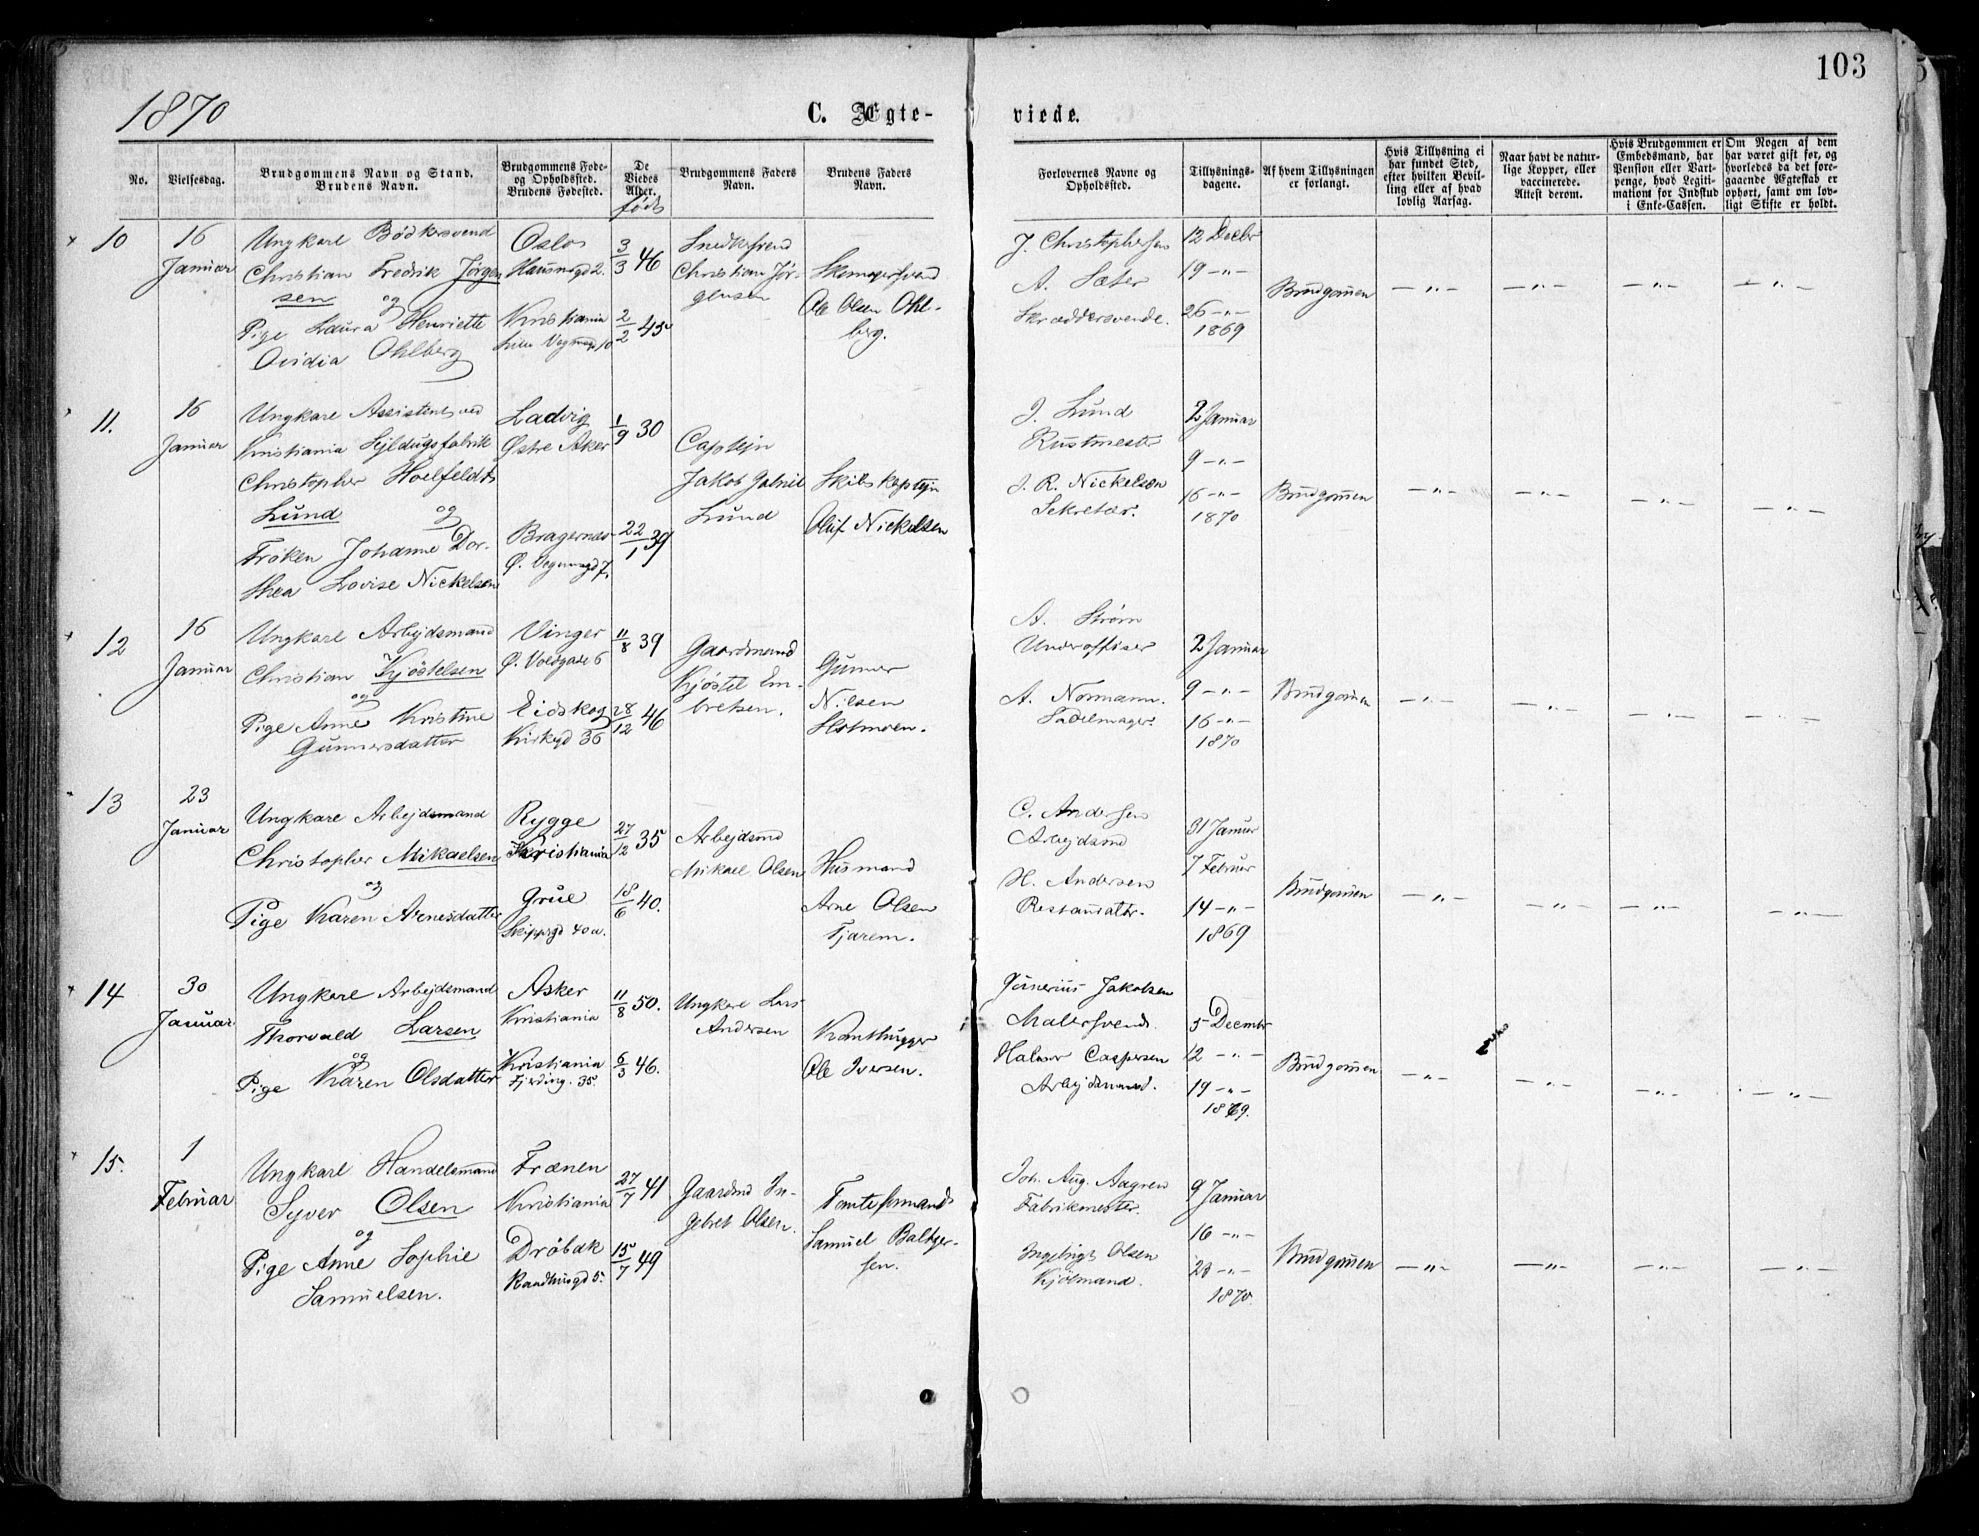 103
1870
C. Ægte-
viede.
No.
Vielsesdag.
Brudgommens Navn og Stand.
Brudens Navn.
Brudgommens Føde-
og Opholdssted.
Brudens Fødested.
De
Viedes
Alder.
født
Brudgommens Faders
Navn.
Brudens Faders
Navn.
Forlovernes Navne og
Opholdssted.
Tillysnings-
dagene.
Af hvem Tillysningen
er forlangt.
Hvis Tillysning ei
har fundet Sted,
efter hvilken Bevil-
ling eller af hvad
lovlig Aarsag.
Naar havt de natur-
lige Kopper, eller
vaccinerede.
Attest derom.
Hvis Brudgommen er
Embedsmand, har
Pension eller Vart-
penge, hvad Legiti-
mationt for Indskud
i Enke-Cassen.
Om Nogen af dem
har været gift før, og
hvorledes da det fore-
gaaende Ægteskab er
ophørt, samt om lov-
ligt Skifte er holdt.
10
16
Januar
Ungkarl Bödkersvend
Christian Fredrik Jörgen
sen
og
Pige Laura Henriette
Ovidia Ohlberg
Oslo
Hausmsgd 2.
Kristiania
Lille Vognmgd 10
3/3 46
2/2 45
Snedkersvend
Christian Jör-
gensen
Skomagersvend
Ole Olsen Ohl-
berg.
J. Christophersen
A. Sæter
Skræddersvende.
12 Decbr
19 -"-
26 -"-
1869
Brudgommen
-"- -"- -"- -"-
11.
16
Januar
Ungkarl Assistent ved
Kristiania Sejldugsfabrik
Christopher Hoelfeldt
Lund
og
Frøken Johanne Dor-
thea Lovise Nickelsen
Ladvig
Østre Aker
Bragernæs
Ø. Vognmgd 7.
1/9 30
22/1 39
Captejn
Jakob Gabriel
Lund
Skibskaptejn
Oluf Nickelsen
J. Lund
Rustmester
J. R. Nickelsen
Sekretær.
2 Januar
9 -"-
16 -"-
1870
Brudgommen
-"- -"- -"- -"-
12
16
Januar
Ungkarl Arbejdsmand
Christian Kjøstelsen
og
Pige Anne Kristine
Gunnersdatter
Vinger
Ø. Voldgade 6
Eidskog
Kirkegd 36
11/8 39
28/12 46
Gaardmand
Kjøstel Em-
bretsen.
Gunner
Nilsen
Holmoen.
A. Strøm
Underofficer
A. Normann.
Sadelmager.
2 Januar
9 -"-
16 -"-
1870
Brudgommen
-"- -"- -"- -"-
13
23
Januar
Ungkarl Arbejdsmand
Christopher Mikaelsen
og
Pige Karen Arnesdatter
Rygge
Kristiania
Grue
Skippergd 40a.
27/12 35
18/6 40.
Arbejdsmd
Mikael Olsen
Husmand
Arne Olsen
Tjarem.
C. Andersen
Arbejdsmd
H. Andersen
Restauratör.
31 Januar
7 Februar
14 -"-
1869
Brudgommen
-"- -"- -"- -"-
14
30
Januar
Ungkarl Arbejdsmand
Thorvald Larsen
og
Pige Karen Olsdatter
Asker
Kristiania
Kristiania
Fjerding. 35
11/8 50.
6/3 46.
Ungkarl Lars
Andersen
Kanthugger
Ole Iversen.
Gunerius Jakobsen
Malersvend.
Halvor Caspersen
Arbejdsmand.
5 Decembr
12 -"-
19 -"-
1869.
Brudgommen
-"- -"- -"- -"-
15.
1
Februar
Ungkarl Handelsmand
Syver Olsen
og
Pige Anne Sophie
Samuelsen.
Frænen
Kristiania
Dröbak
Raadhusgd 5
27/7 41
15/7 49
Gaardmd In-
gebret Olsen.
Tomteformand
Samuel Baltzer-
sen.
Joh. Aug. Aagren
Fabrikmester.
Ingebrigt Olsen
Kjølmand.
9 Januar
16 -"-
23 -"-
1870.
Brudgommen
-"- -"- -"- -"-